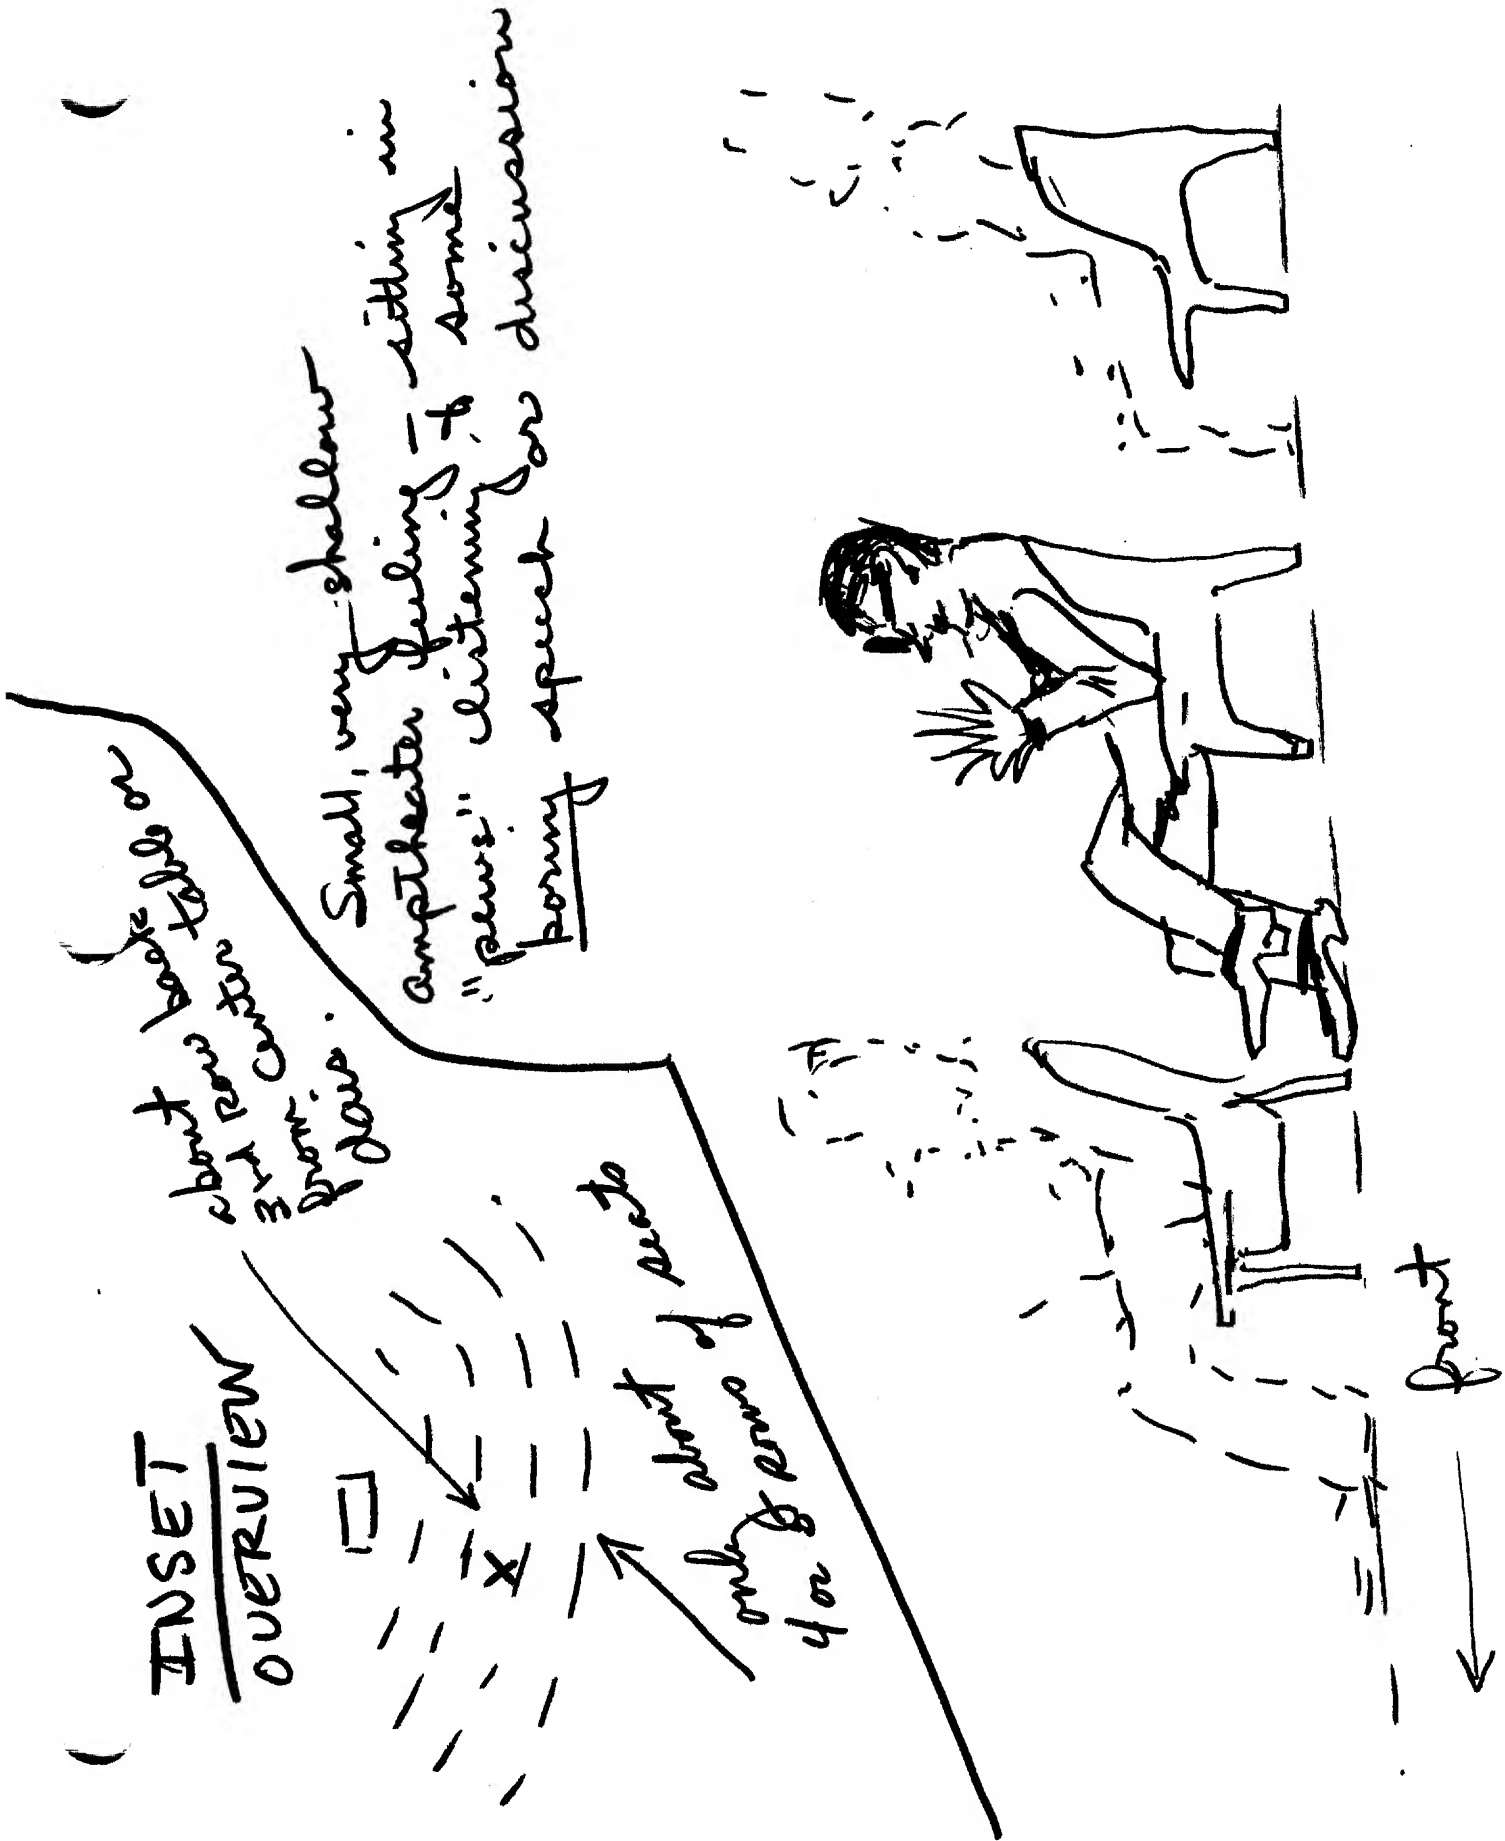 INSET
OVERVIEW
about
3rd row back
from center table or
dais.
only about
4 or 5 rows of seats
Small, very shallow
amptheater feeling – sitting in
"pews" listening to some
boring speech or discussion
front